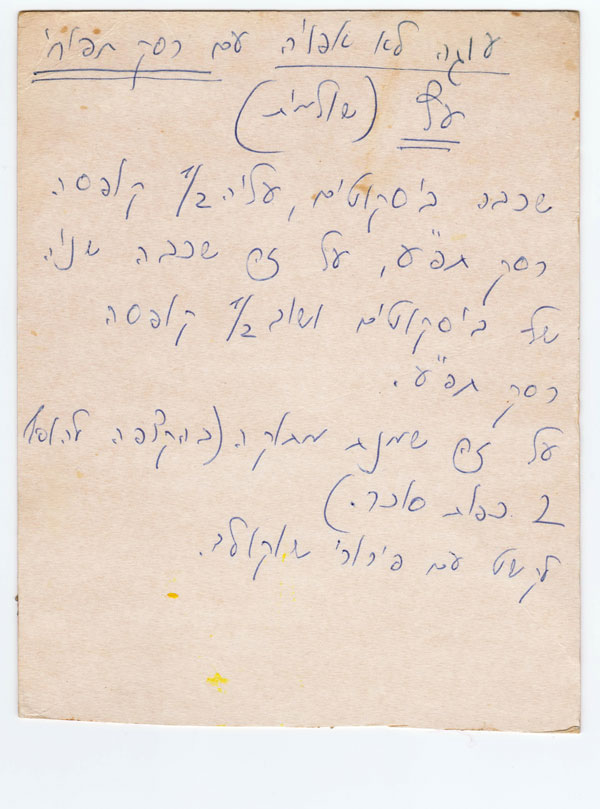 עוגה לא אפויה עם רסק תפוחי
עץ (שולמית)
שכבה ביסקוטים, עליה 1/2 קופסה
רסק תפ"ע, על זה שכבה שניה
של ביסקוטים ושוב 1/2 קופסה
רסק תפ"ע.
על זה שמנת מתוקה (בהקצפה להוסיף
2 כפות סוכר.)
לקשט עם פירורי שוקולד.